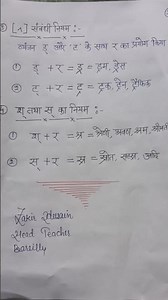 ③ [र] संबंधी नियम:-
व्यंजन 'ड्' और 'ट' के साथ र का प्रयोग किया
① ड् + र = ड्र = ड्रम, ड्रेस
② ट् + र = ट्र = ट्रक, ट्रेन, ट्रैफिक
④ श् तथा स् का नियम:-
① श् + र = श्र = श्रेणी, श्रवण, श्रम, श्रीमती
② स् + र = स्र = स्रोत, सहस्र, आदि
Zakir Hussain
Head Teacher
Bareilly